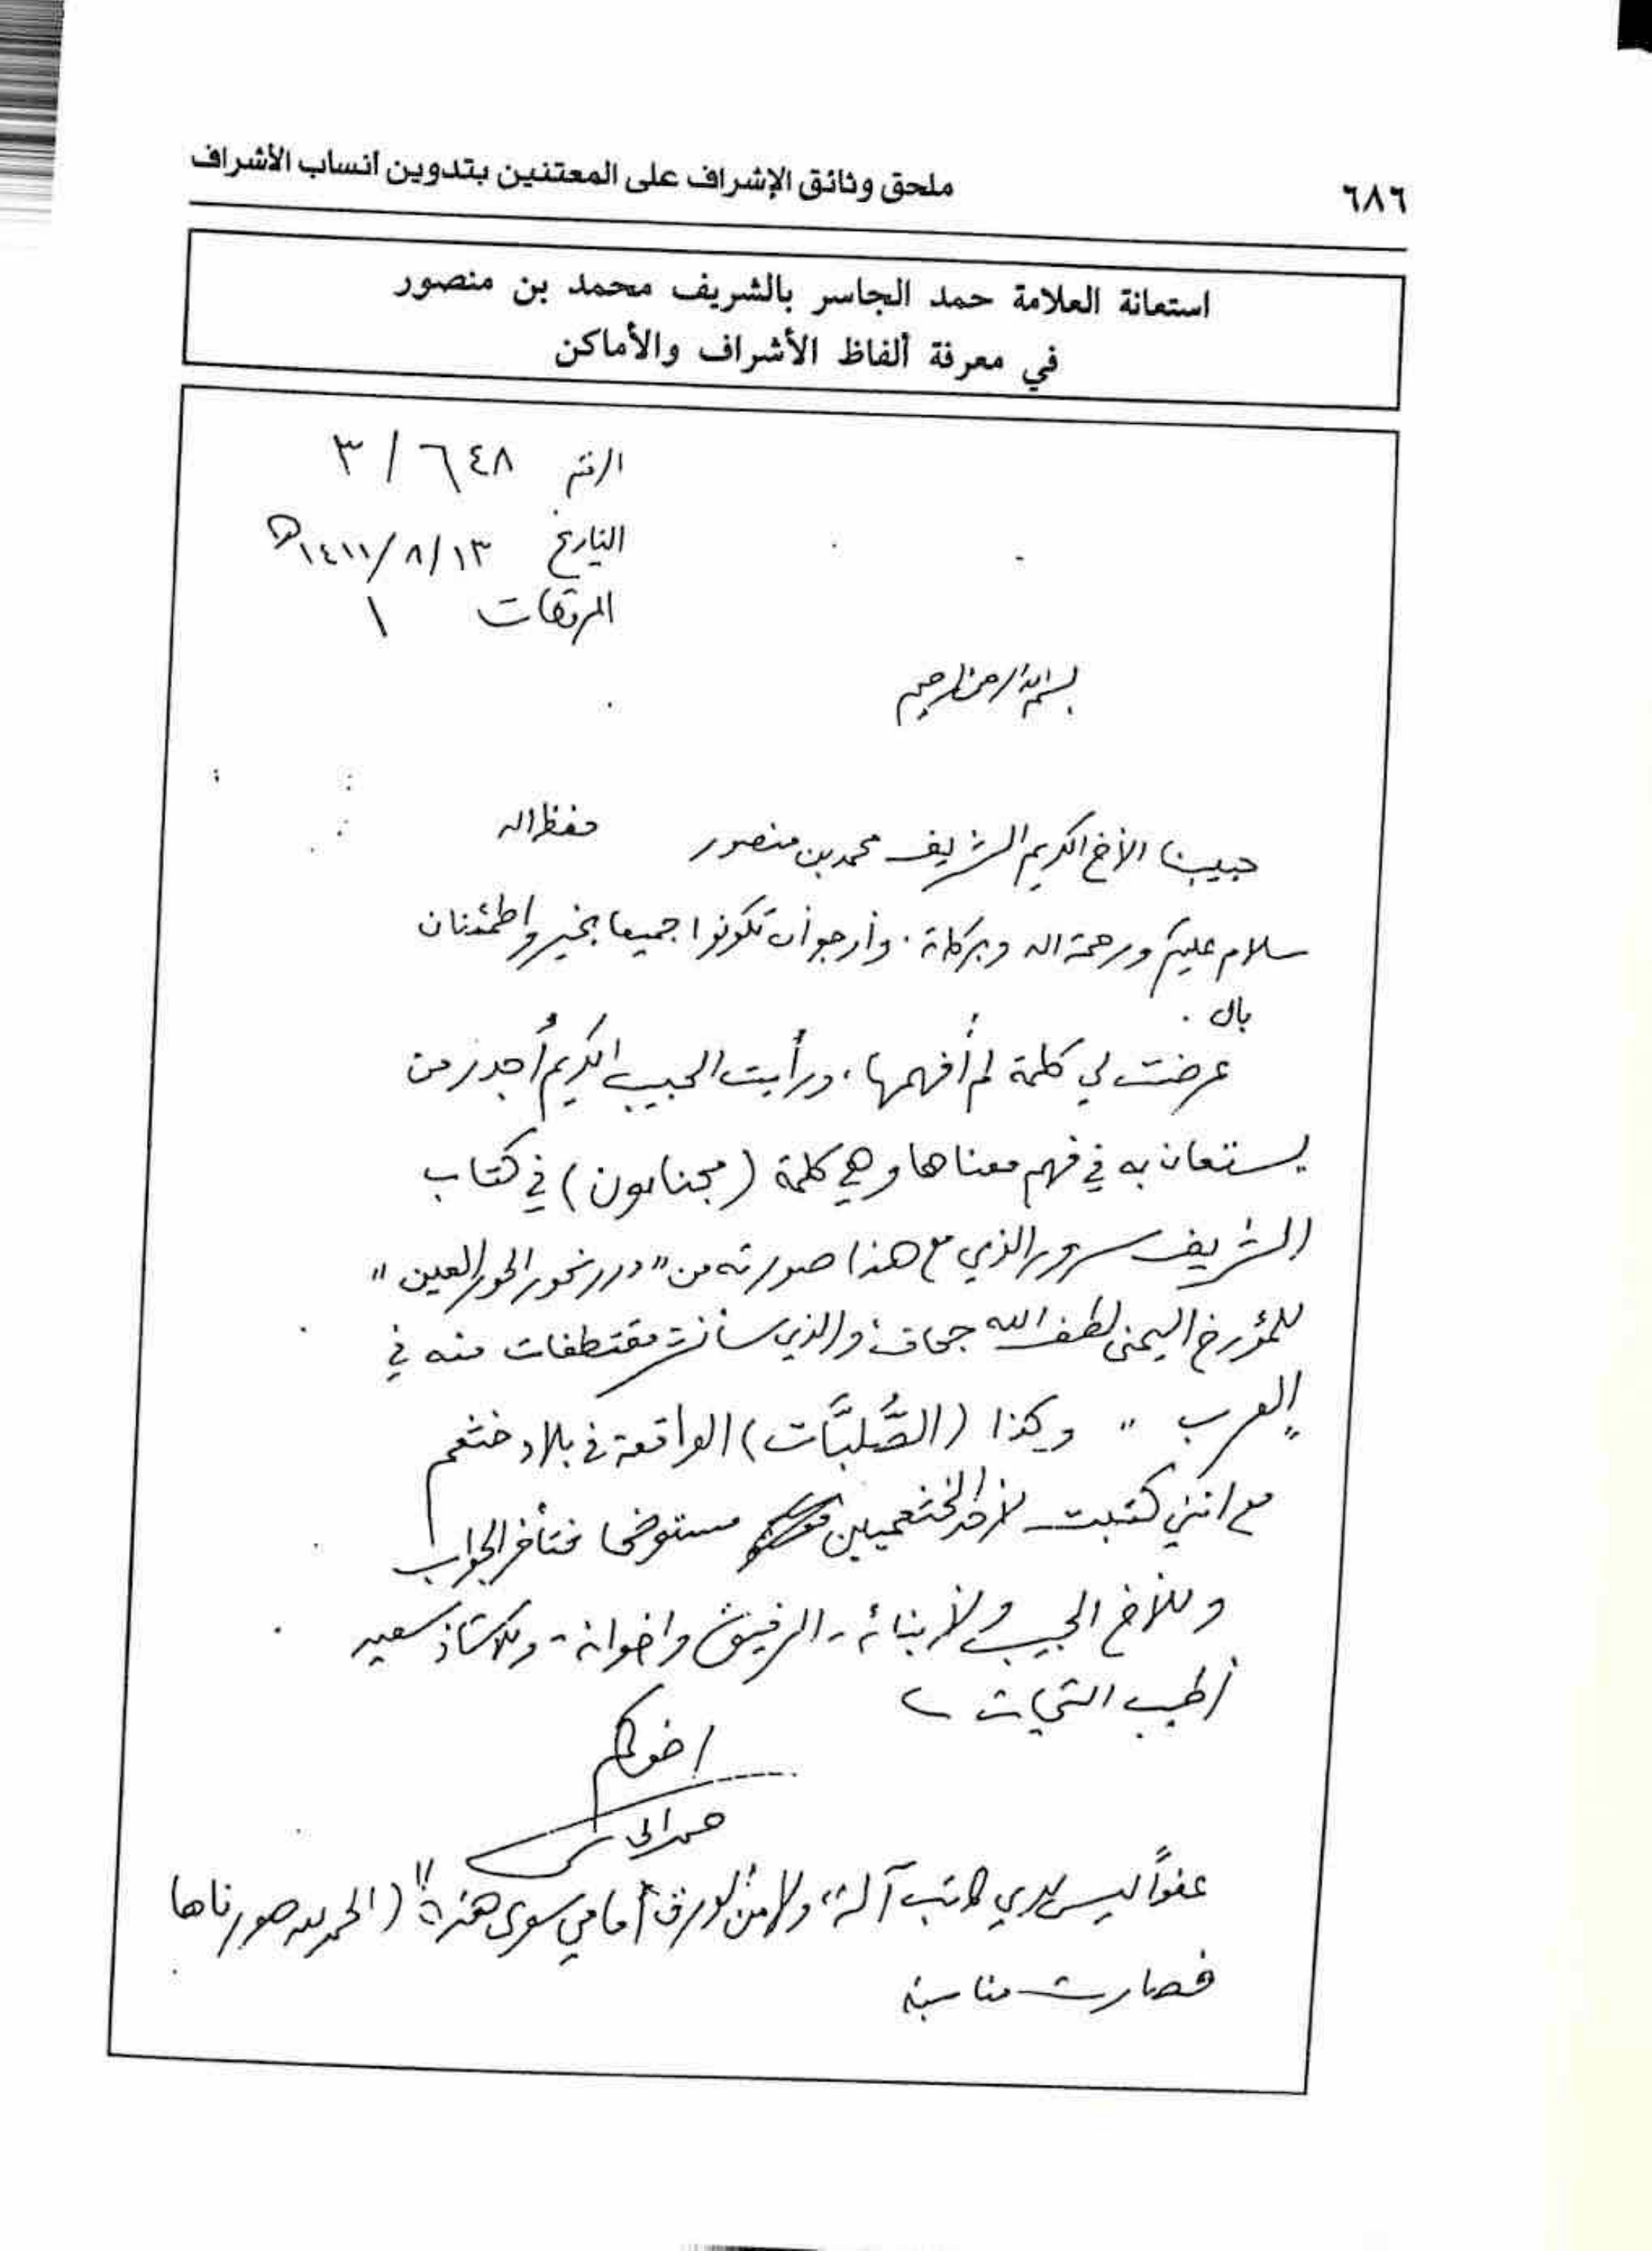 ٦٨٦ ملحق وثائق الإشراف على المعتنين بتدوين أنساب الأشراف
استعانة العلامة حمد الجاسر بالشريف محمد بن منصور
في معرفة ألفاظ الأشراف والأماكن
الرقم ٣/٦٤٨
التاريخ ١٤١١/٨/١٣هـ
المرفقات ١
بسم الله الرحمن الرحيم
حبيبنا الأخ الكريم الشريف محمد بن منصور حفظه الله
سلام عليكم ورحمة الله وبركاته. وأرجو أن تكونوا جميعا بخير واطمئنان
بال.
عرضت لي كلمة لم أفهمها، ورأيت الحبيب الكريم أجدر من
يستعان به في فهم معناها وهي كلمة () في كتاب
الشريف سرور الذي مع هذا صورته من "درر نحور الحور العين"
للمؤرخ اليمني لطف الله جحاف، والذي سأنشر مقتطفات منه في
"العرب" وكذا (الصُّلبَّات) الواقعة في بلاد خثعم
مع انني كتبت لأحد الخثعميين مستوضحا فتأخر الجواب
وللأخ الحبيب ولأبنائه - الرفيق واخوانه - وللأستاذ سعيد
أطيب التحيات
اخوكم
حمد الجاسر
عفواً ليس لدي كاتب آلة، ولا من الورق أمامي سوى هذه!! (الحمد لله صورناها
فصارت مناسبة